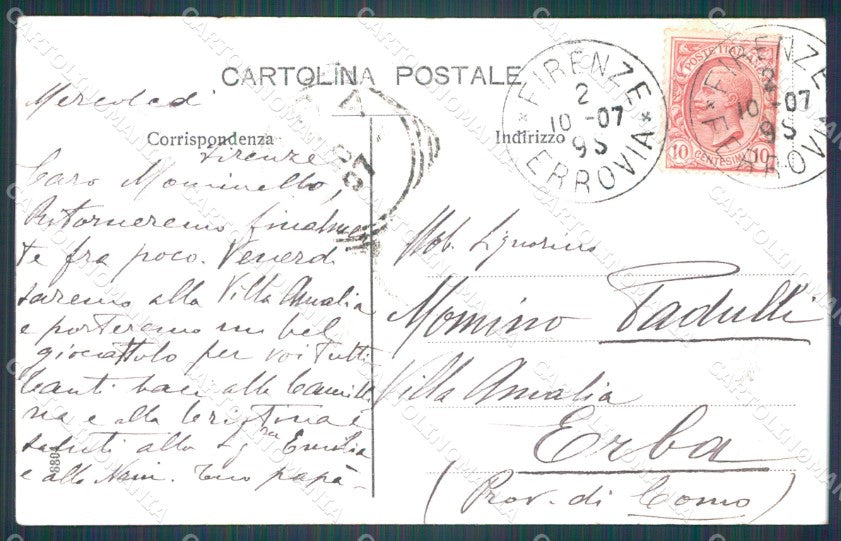 CARTOLINA POSTALE
Mercoledì
Corrispondenza
Indirizzo
Firenze
Caro Mominello,
Ritorneremo finalmen
te fra poco. Venerdì
saremo alla Villa Amalia
e porteremo un bel
giocattolo per voi tutti
Tanti baci alla Camilli
na e alla Cristina e
saluti alla Sg.ra Emilia
e alla Nain. Tuo papà-
8804
FIRENZE
2
10-07
9S
FERROVIA
POSTE ITALIANE
10 CENTESIMI 10
FIRENZE
10-07
9S
FERROVIA
07
Nob. Signorino
Momino Padulli
Villa Amalia
Erba
(Prov. di Como)
CARTOLINOMANIA